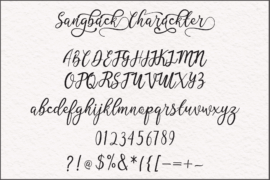 Sangback Charackter
ABCDEFGHIJKLMN
OPQRSTUVXYZ
abcdefghijklmnopqrstuvwxyz
0123456789
?!@$%&*|{[—=+~